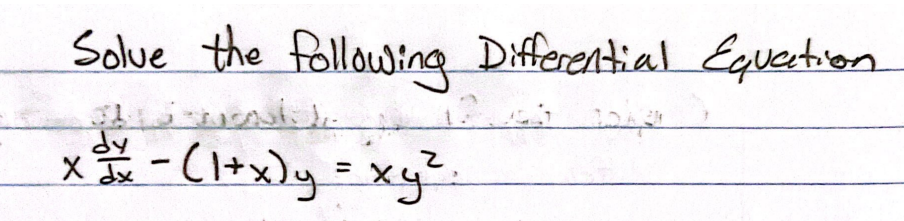 Solve the following Differential Equation
x dy/dx - (1+x)y = xy².